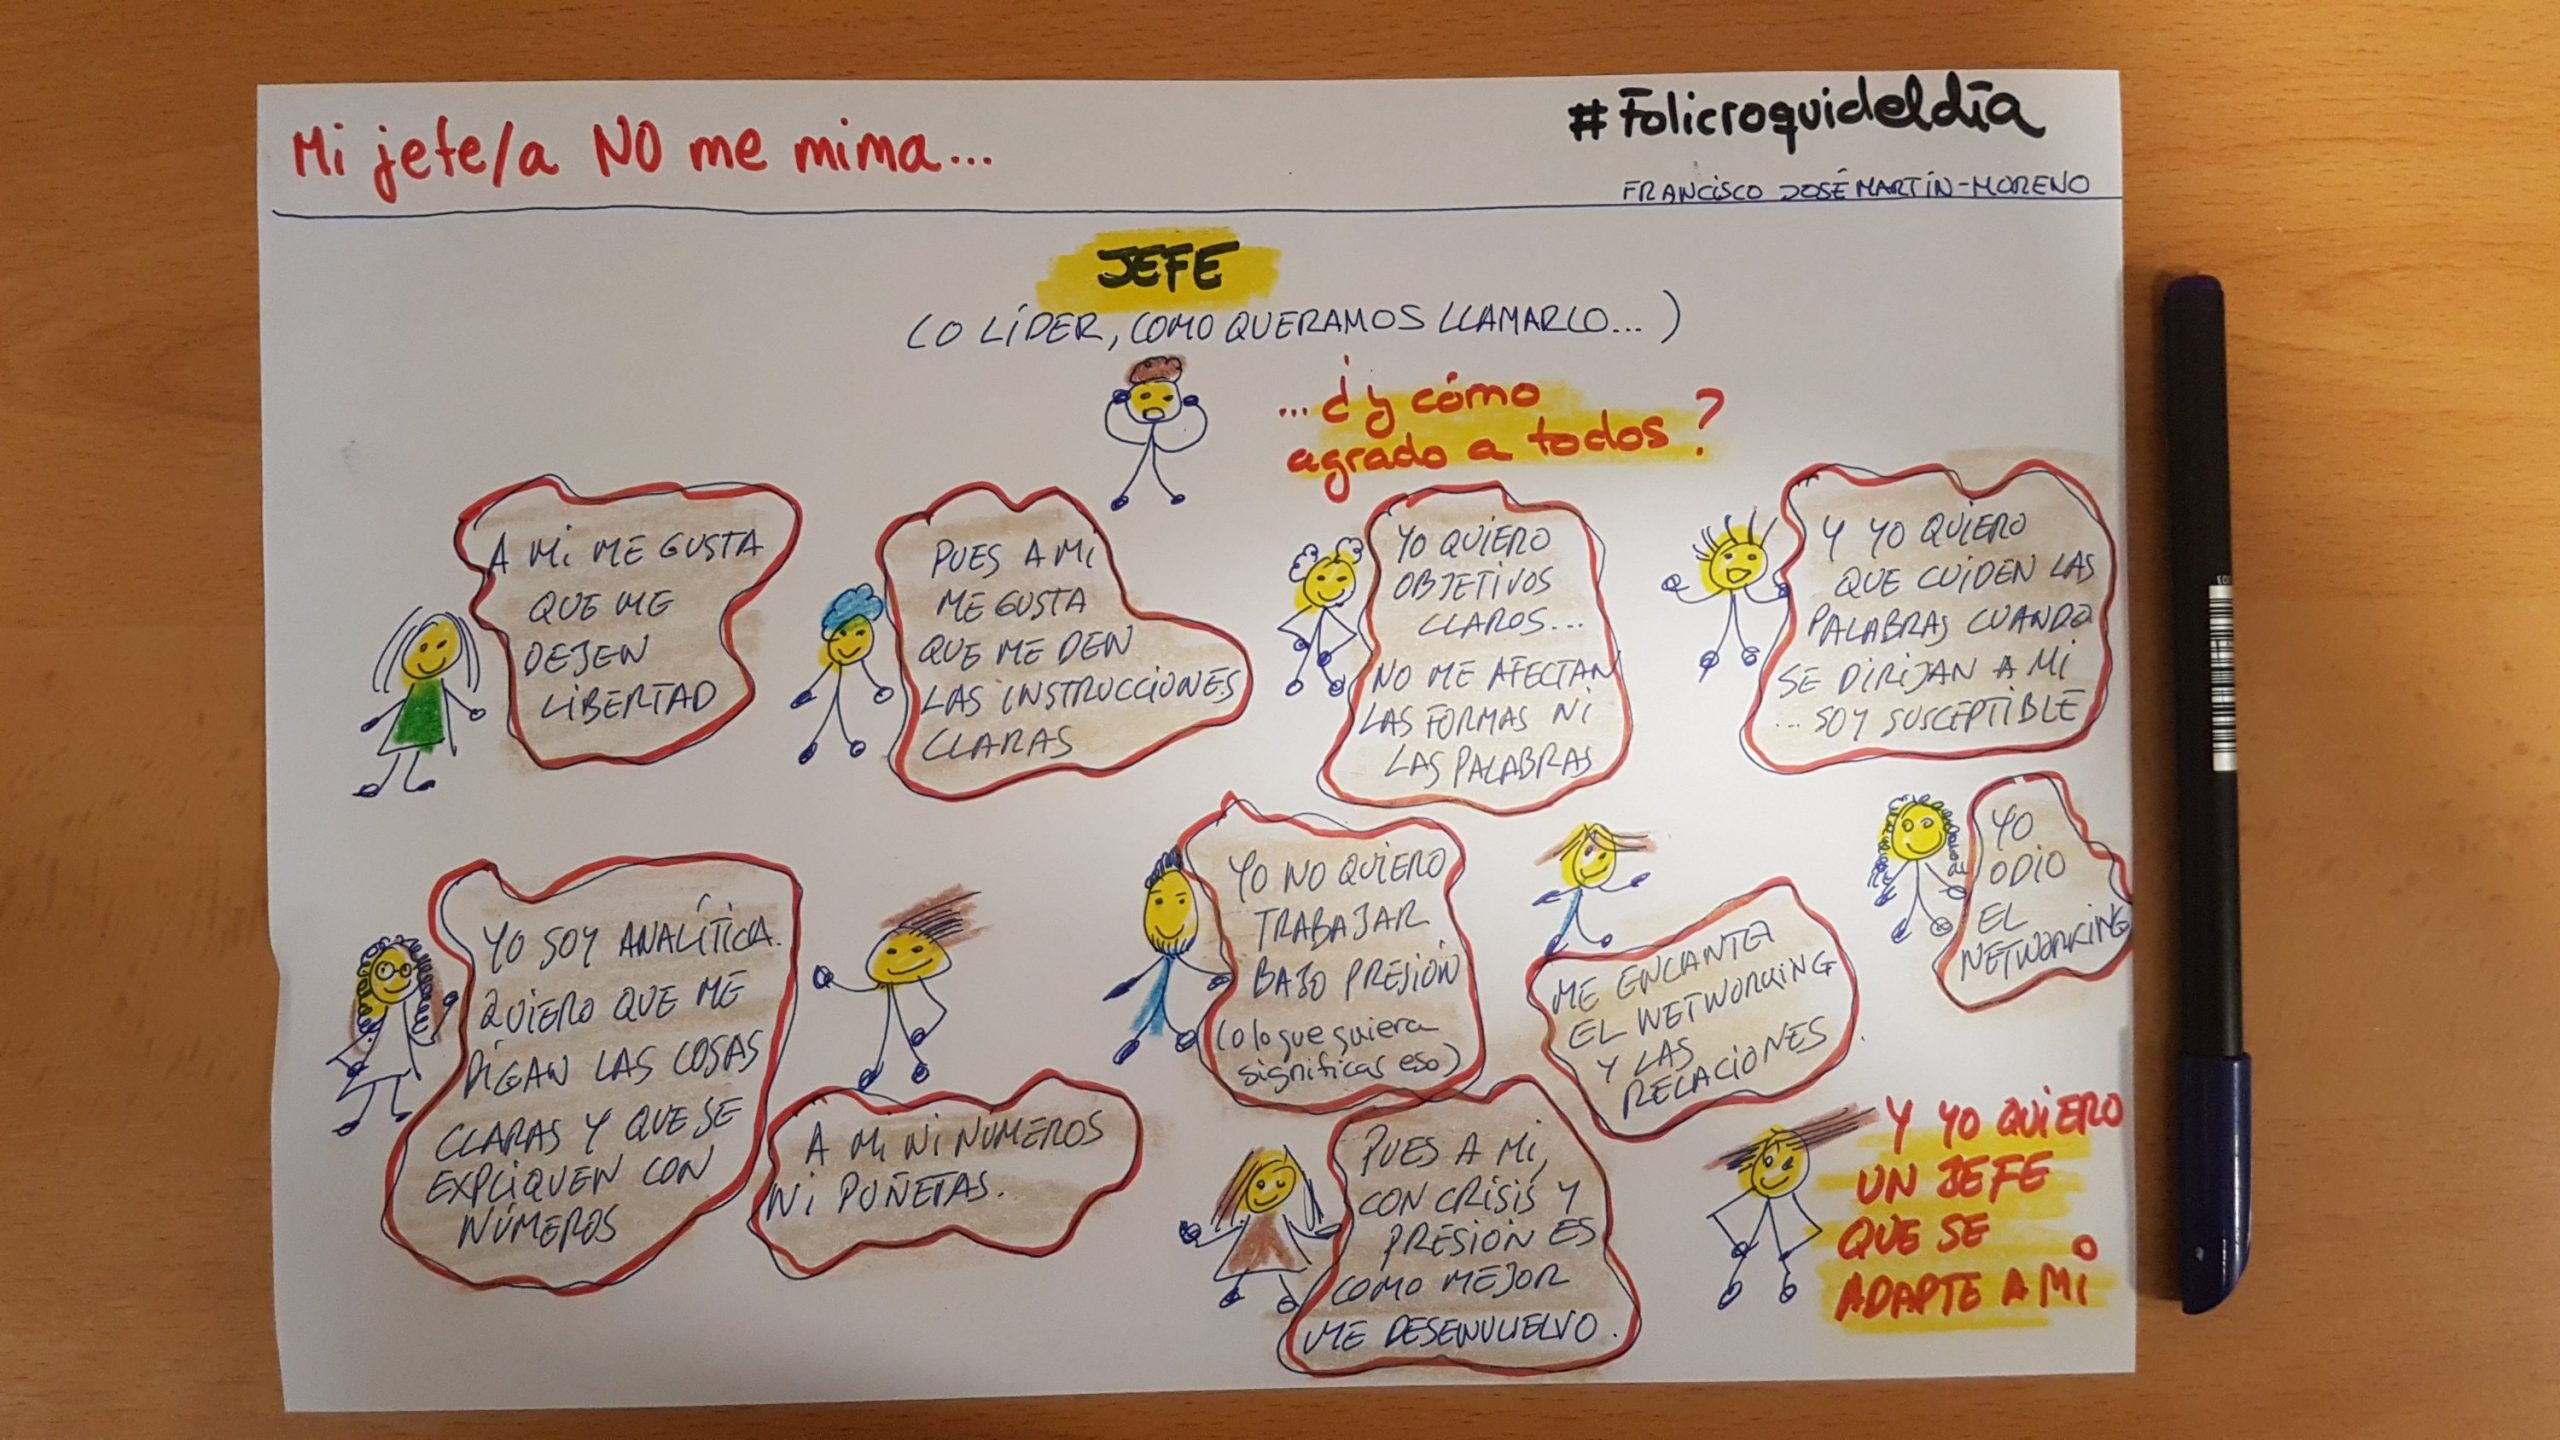 Mi jefe/a NO me mima...
#Folicroquideldía
FRANCISCO JOSÉ MARTÍN-MORENO
JEFE
(O LÍDER, COMO QUERAMOS LLAMARLO...)
...¿y cómo
agrado a todos?
A MI ME GUSTA
QUE ME
DEJEN
LIBERTAD
PUES A MI
ME GUSTA
QUE ME DEN
LAS INSTRUCCIONES
CLARAS
YO QUIERO
OBJETIVOS
CLAROS...
NO ME AFECTAN
LAS FORMAS NI
LAS PALABRAS
Y YO QUIERO
QUE CUIDEN LAS
PALABRAS CUANDO
SE DIRIJAN A MI
...SOY SUSCEPTIBLE
YO SOY ANALÍTICA.
QUIERO QUE ME
DIGAN LAS COSAS
CLARAS Y QUE SE
EXPLIQUEN CON
NÚMEROS
A MI NI NÚMEROS
NI PUÑETAS.
YO NO QUIERO
TRABAJAR
BAJO PRESIÓN
(o lo que quiera
significar eso)
ME ENCANTA
EL NETWORKING
Y LAS
RELACIONES
YO
ODIO
EL
NETWORKING
PUES A MI,
CON CRISIS Y
PRESIÓN ES
COMO MEJOR
ME DESENVUELVO.
Y YO QUIERO
UN JEFE
QUE SE
ADAPTE A MI